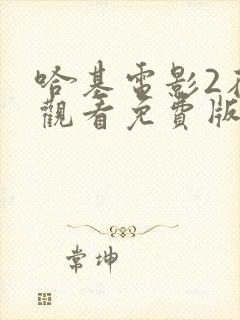 哈基電影2在
觀看免費版
常坤